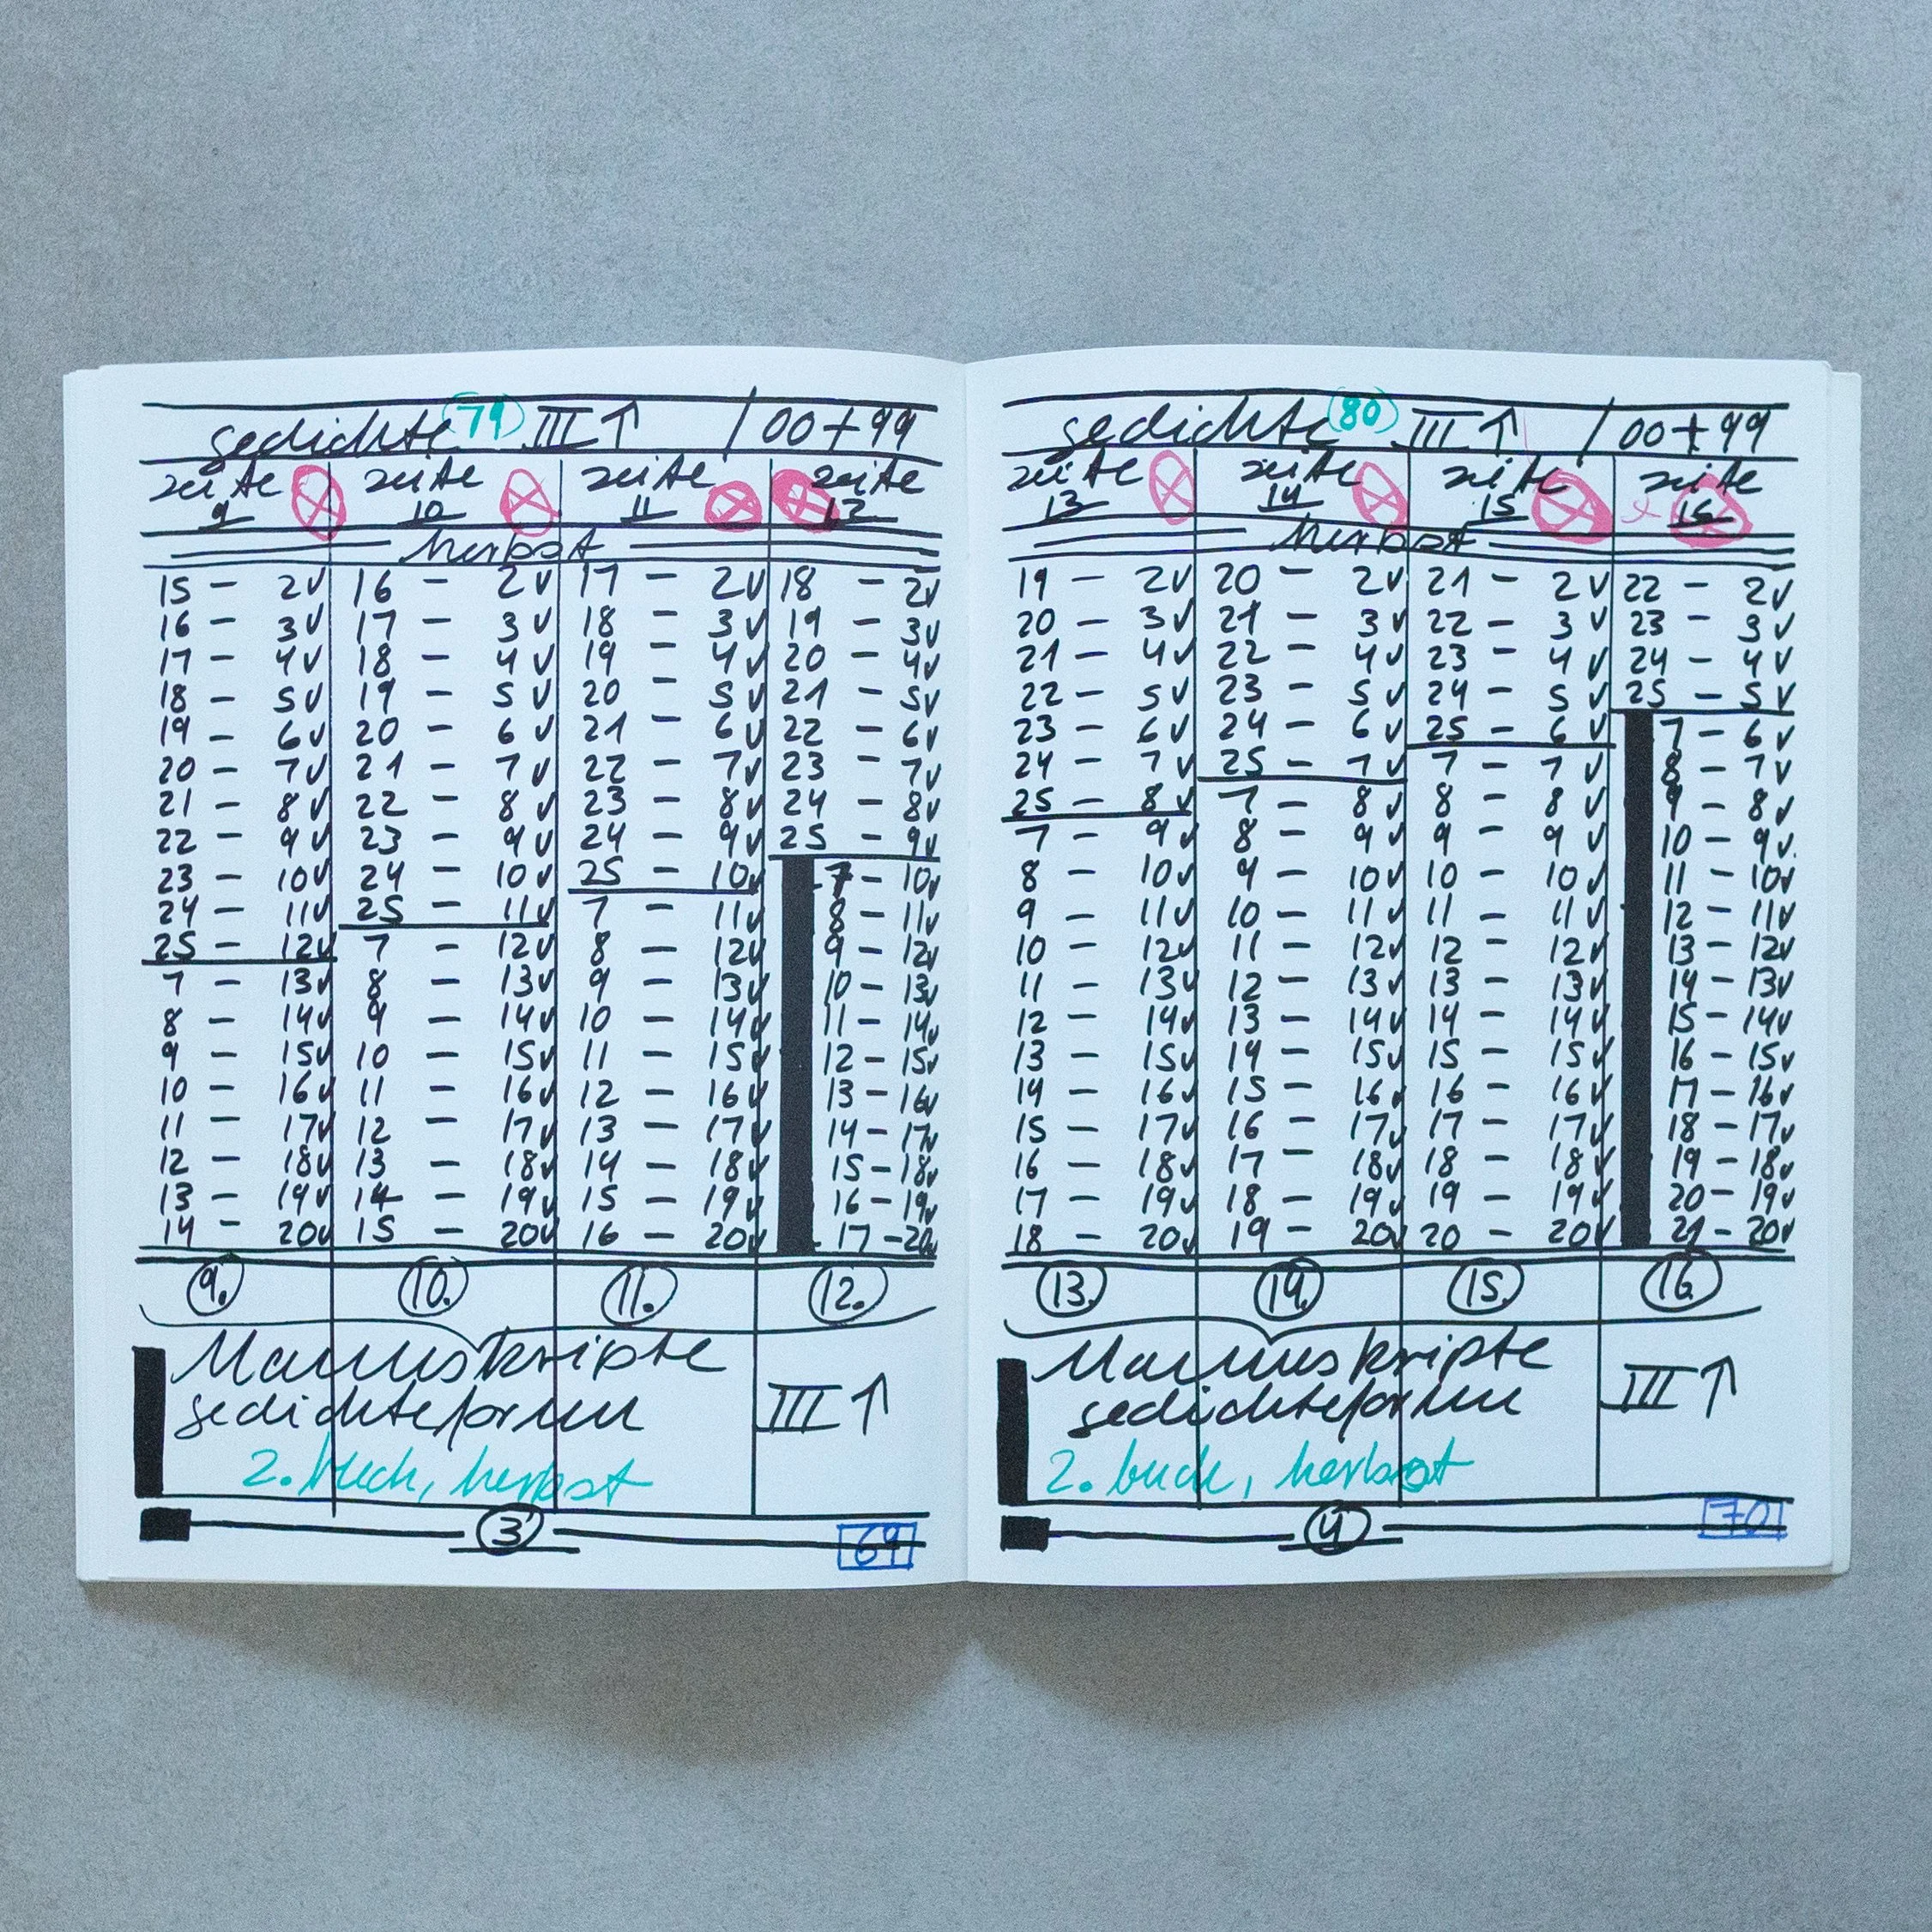 gedichte (79) III↑ / 00+99
zeite 9 zeite 10 zeite 11 zeite 12
herbst
15 – 2✓ 16 – 2✓ 17 – 2✓ 18 – 2✓
16 – 3✓ 17 – 3✓ 18 – 3✓ 19 – 3✓
17 – 4✓ 18 – 4✓ 19 – 4✓ 20 – 4✓
18 – 5✓ 19 – 5✓ 20 – 5✓ 21 – 5✓
19 – 6✓ 20 – 6✓ 21 – 6✓ 22 – 6✓
20 – 7✓ 21 – 7✓ 22 – 7✓ 23 – 7✓
21 – 8✓ 22 – 8✓ 23 – 8✓ 24 – 8✓
22 – 9✓ 23 – 9✓ 24 – 9✓ 25 – 9✓
23 – 10✓ 24 – 10✓ 25 – 10✓ 7 – 10✓
24 – 11✓ 25 – 11✓ 7 – 11✓ 8 – 11✓
25 – 12✓ 7 – 12✓ 8 – 12✓ 9 – 12✓
7 – 13✓ 8 – 13✓ 9 – 13✓ 10 – 13✓
8 – 14✓ 9 – 14✓ 10 – 14✓ 11 – 14✓
9 – 15✓ 10 – 15✓ 11 – 15✓ 12 – 15✓
10 – 16✓ 11 – 16✓ 12 – 16✓ 13 – 16✓
11 – 17✓ 12 – 17✓ 13 – 17✓ 14 – 17✓
12 – 18✓ 13 – 18✓ 14 – 18✓ 15 – 18✓
13 – 19✓ 14 – 19✓ 15 – 19✓ 16 – 19✓
14 – 20✓ 15 – 20✓ 16 – 20✓ 17 – 20✓
9. 10. 11. 12.
Manuskripte
gedichteformen III↑
2. buch, herbst
3
69
gedichte (80) III↑ / 00+99
zeite 13 zeite 14 zeite 15 zeite 16
herbst
19 – 2✓ 20 – 2✓ 21 – 2✓ 22 – 2✓
20 – 3✓ 21 – 3✓ 22 – 3✓ 23 – 3✓
21 – 4✓ 22 – 4✓ 23 – 4✓ 24 – 4✓
22 – 5✓ 23 – 5✓ 24 – 5✓ 25 – 5✓
23 – 6✓ 24 – 6✓ 25 – 6✓ 7 – 6✓
24 – 7✓ 25 – 7✓ 7 – 7✓ 8 – 7✓
25 – 8✓ 7 – 8✓ 8 – 8✓ 9 – 8✓
7 – 9✓ 8 – 9✓ 9 – 9✓ 10 – 9✓
8 – 10✓ 9 – 10✓ 10 – 10✓ 11 – 10✓
9 – 11✓ 10 – 11✓ 11 – 11✓ 12 – 11✓
10 – 12✓ 11 – 12✓ 12 – 12✓ 13 – 12✓
11 – 13✓ 12 – 13✓ 13 – 13✓ 14 – 13✓
12 – 14✓ 13 – 14✓ 14 – 14✓ 15 – 14✓
13 – 15✓ 14 – 15✓ 15 – 15✓ 16 – 15✓
14 – 16✓ 15 – 16✓ 16 – 16✓ 17 – 16✓
15 – 17✓ 16 – 17✓ 17 – 17✓ 18 – 17✓
16 – 18✓ 17 – 18✓ 18 – 18✓ 19 – 18✓
17 – 19✓ 18 – 19✓ 19 – 19✓ 20 – 19✓
18 – 20✓ 19 – 20✓ 20 – 20✓ 21 – 20✓
13. 14. 15. 16.
Manuskripte
gedichteformen III↑
2. buch, herbst
4
70